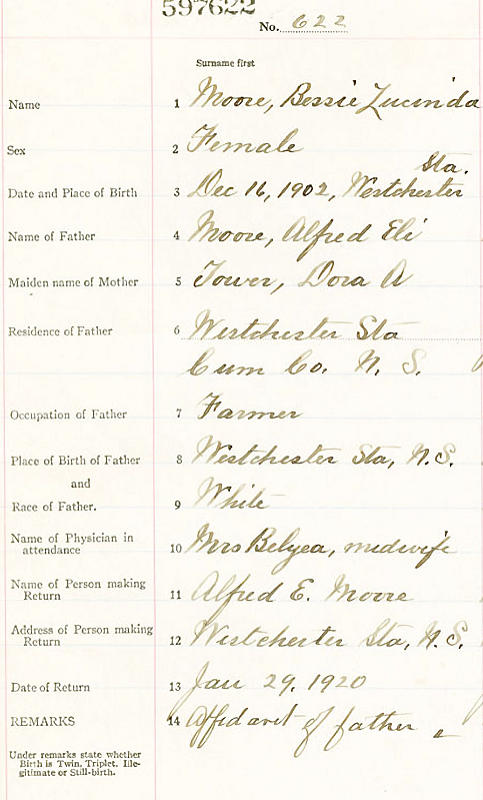 597622
No. 622
Surname first
Name 1 Moore, Bessie Lucinda
Sex 2 Female
Sta.
Date and Place of Birth 3 Dec 16, 1902, Westchester
Name of Father 4 Moore, Alfred Eli
Maiden name of Mother 5 Tower, Dora A
Residence of Father 6 Westchester Sta
Cum Co. N. S.
Occupation of Father 7 Farmer
Place of Birth of Father 8 Westchester Sta, N.S.
and
Race of Father. 9 White
Name of Physician in
attendance 10 Mrs Belyea, midwife
Name of Person making
Return 11 Alfred E. Moore
Address of Person making
Return 12 Westchester Sta, N.S.
Date of Return 13 Jan 29, 1920
REMARKS 14 Affidavit of father
Under remarks state whether
Birth is Twin, Triplet, Ille-
gitimate or Still-birth.